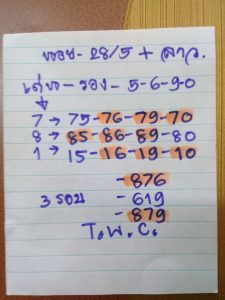 หอย- 28/5 + ลาว.
เด่น - รอง - 5-6-9-0
7 → 75-76-79-70
8 → 85-86-89-80
1 → 15-16-19-10
-876
3 -619
-879
T.W.C.